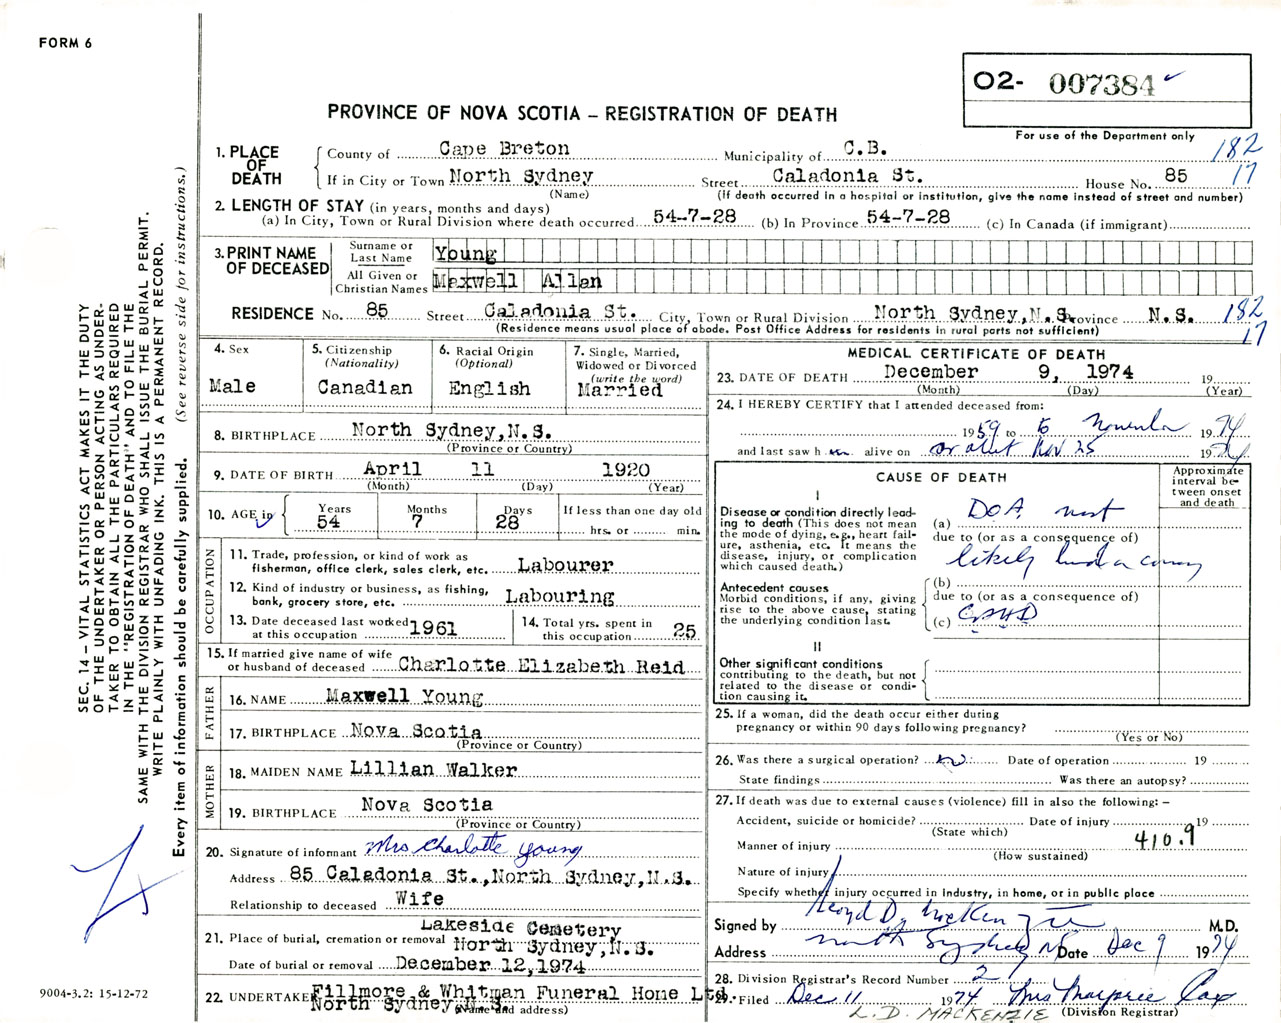 FORM 6
O2- 007384
PROVINCE OF NOVA SCOTIA – REGISTRATION OF DEATH
For use of the Department only
182
17
1. PLACE OF DEATH
County of Cape Breton Municipality of C.B.
If in City or Town North Sydney Street Caladonia St. House No. 85
(Name) (If death occurred in a hospital or institution, give the name instead of street and number)
2. LENGTH OF STAY (in years, months and days)
(a) In City, Town or Rural Division where death occurred 54-7-28 (b) In Province 54-7-28 (c) In Canada (if immigrant)
3. PRINT NAME OF DECEASED
Surname or Last Name Young
All Given or Christian Names Maxwell Allan
RESIDENCE No. 85 Street Caladonia St. City, Town or Rural Division North Sydney, N.S. Province N.S. 182
(Residence means usual place of abode. Post Office Address for residents in rural parts not sufficient) 17
4. Sex
Male
5. Citizenship
(Nationality)
Canadian
6. Racial Origin
(Optional)
English
7. Single, Married, Widowed or Divorced
(write the word)
Married
8. BIRTHPLACE North Sydney, N.S.
(Province or Country)
9. DATE OF BIRTH April 11 1920
(Month) (Day) (Year)
10. AGE in
Years 54
Months 7
Days 28
If less than one day old
hrs. or min.
OCCUPATION
11. Trade, profession, or kind of work as fisherman, office clerk, sales clerk, etc. Labourer
12. Kind of industry or business, as fishing, bank, grocery store, etc. Labouring
13. Date deceased last worked at this occupation 1961
14. Total yrs. spent in this occupation 25
15. If married give name of wife or husband of deceased Charlotte Elizabeth Reid
FATHER
16. NAME Maxwell Young
17. BIRTHPLACE Nova Scotia
(Province or Country)
MOTHER
18. MAIDEN NAME Lillian Walker
19. BIRTHPLACE Nova Scotia
(Province or Country)
20. Signature of informant Mrs Charlotte Young
Address 85 Caladonia St., North Sydney, N.S.
Relationship to deceased Wife
21. Place of burial, cremation or removal Lakeside Cemetery North Sydney, N.S.
Date of burial or removal December 12, 1974
22. UNDERTAKER Fillmore & Whitman Funeral Home Ltd.
North Sydney, N.S.
(Name and address)
MEDICAL CERTIFICATE OF DEATH
23. DATE OF DEATH December 9, 1974 19
(Month) (Day) (Year)
24. I HEREBY CERTIFY that I attended deceased from:
1959 to November 1974
and last saw h im alive on or about Nov 25 1974
CAUSE OF DEATH
Approximate interval between onset and death
I
Disease or condition directly leading to death (This does not mean the mode of dying, e.g., heart failure, asthenia, etc. It means the disease, injury, or complication which caused death.)
(a) DOA most
due to (or as a consequence of)
likely
Antecedent causes
Morbid conditions, if any, giving rise to the above cause, stating the underlying condition last.
(b)
due to (or as a consequence of)
(c)
II
Other significant conditions contributing to the death, but not related to the disease or condition causing it.
25. If a woman, did the death occur either during pregnancy or within 90 days following pregnancy?
(Yes or No)
26. Was there a surgical operation? no Date of operation 19
State findings Was there an autopsy?
27. If death was due to external causes (violence) fill in also the following: –
Accident, suicide or homicide? Date of injury 19
(State which) 410.9
Manner of injury
(How sustained)
Nature of injury
Specify whether injury occurred in industry, in home, or in public place
Signed by Lloyd D. MacKenzie M.D.
Address North Sydney NS Date Dec 9 1974
28. Division Registrar's Record Number 2
29. Filed Dec 11 1974 Mrs Marjorie Cox
(Division Registrar)
L.D. MACKENZIE
SEC. 14 – VITAL STATISTICS ACT MAKES IT THE DUTY
OF THE UNDERTAKER OR PERSON ACTING AS UNDER-
TAKER TO OBTAIN ALL THE PARTICULARS REQUIRED
IN THE "REGISTRATION OF DEATH" AND TO FILE THE
SAME WITH THE DIVISION REGISTRAR WHO SHALL ISSUE THE BURIAL PERMIT.
WRITE PLAINLY WITH UNFADING INK. THIS IS A PERMANENT RECORD.
Every item of information should be carefully supplied. (See reverse side for instructions.)
9004-3.2: 15-12-72